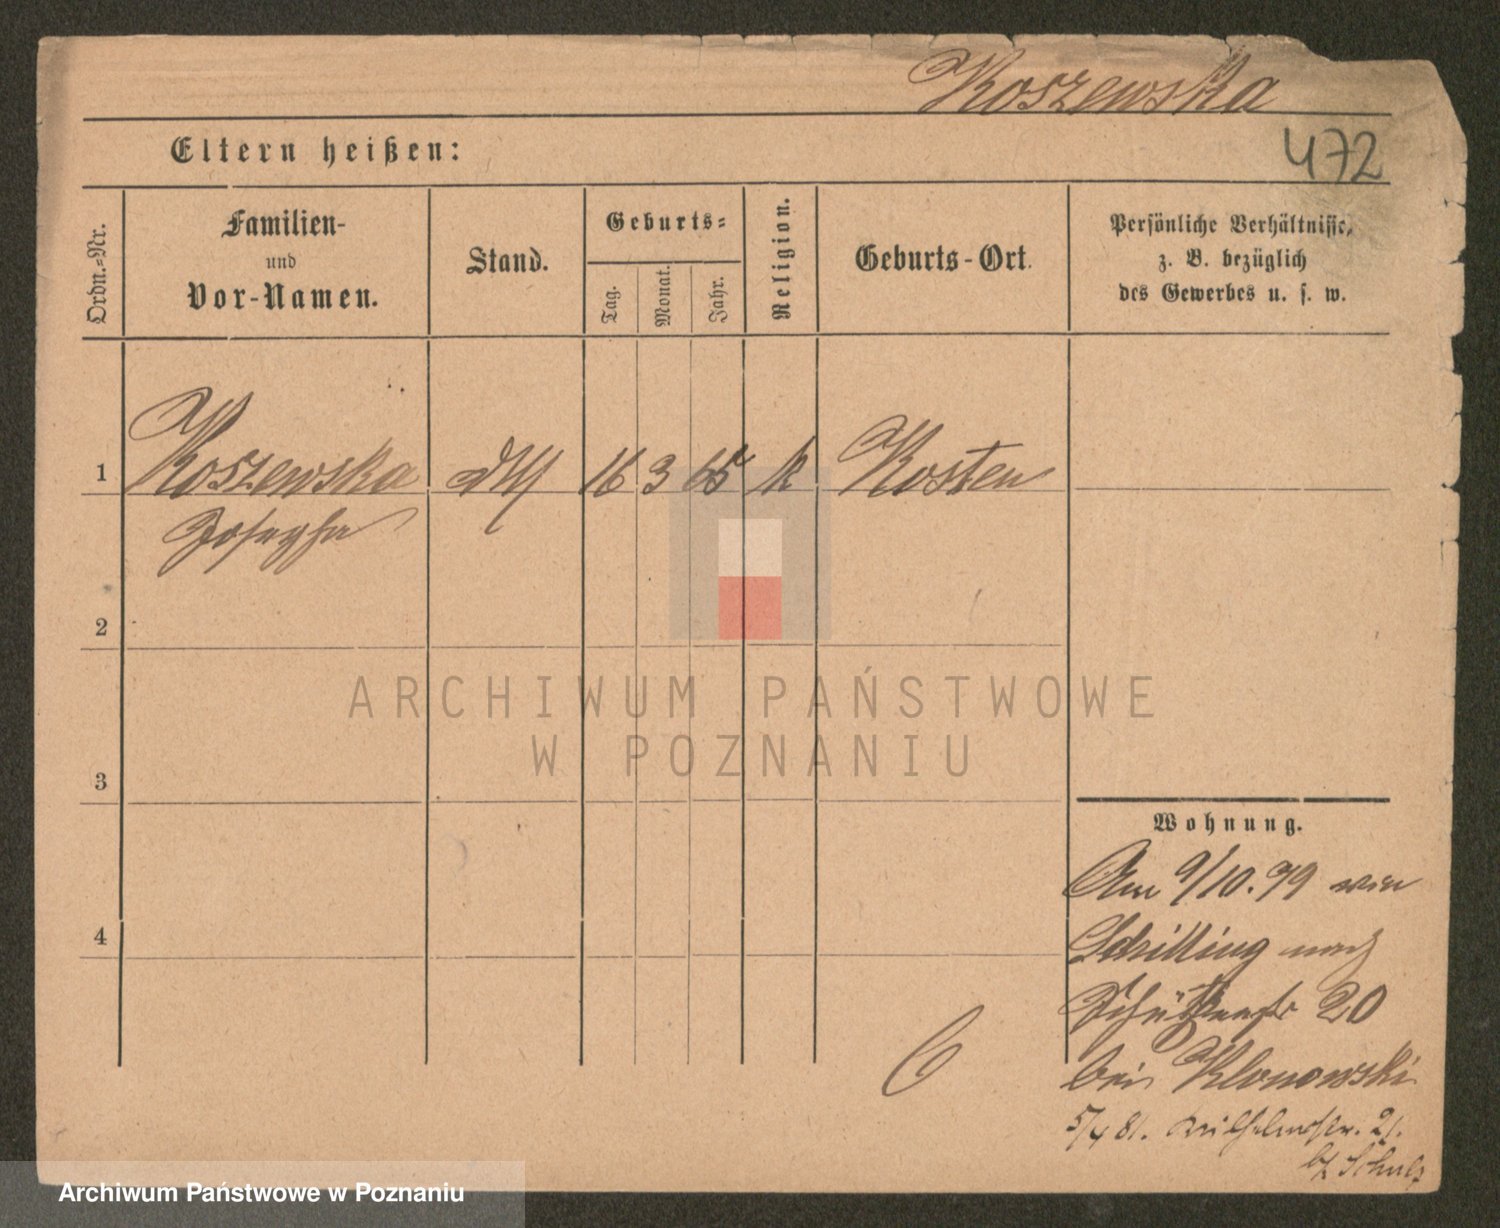 Koszewska
472
Eltern heißen:
Ordn.-Nr.
Familien-
und
Vor-Namen.
Stand.
Geburts-
Tag.
Monat.
Jahr.
Religion.
Geburts-Ort.
Persönliche Verhältnisse,
z. B. bezüglich
des Gewerbes u. s. w.
1 Koszewska 16 3 65 k Kosten
Josepha
2
3
4
Wohnung.
Am 9/10.79 von
Schilling nach
Schützenstr 20
bei Klonowski
5/4 81. Wilhelmstr. 21.
b/ Schulz
ARCHIWUM PAŃSTWOWE
W POZNANIU
Archiwum Państwowe w Poznaniu